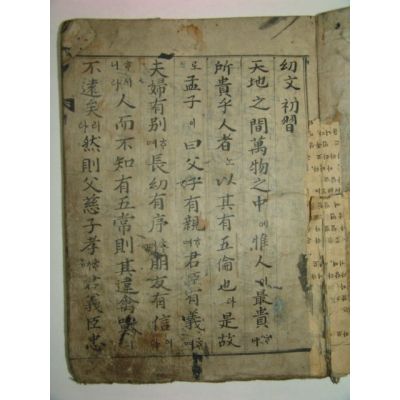 幼文初習
天地之間萬物之中에惟人이最貴
所貴乎人者노以其有五倫也라是故
로孟子에曰父子有親ᄒᆞ며君臣有義ᄒᆞ며
夫婦有别ᄒᆞ며長幼有序ᄒᆞ며朋友有信이
人而不知有五常則其違禽獸
不遠矣리다然則父慈子孝君義臣忠